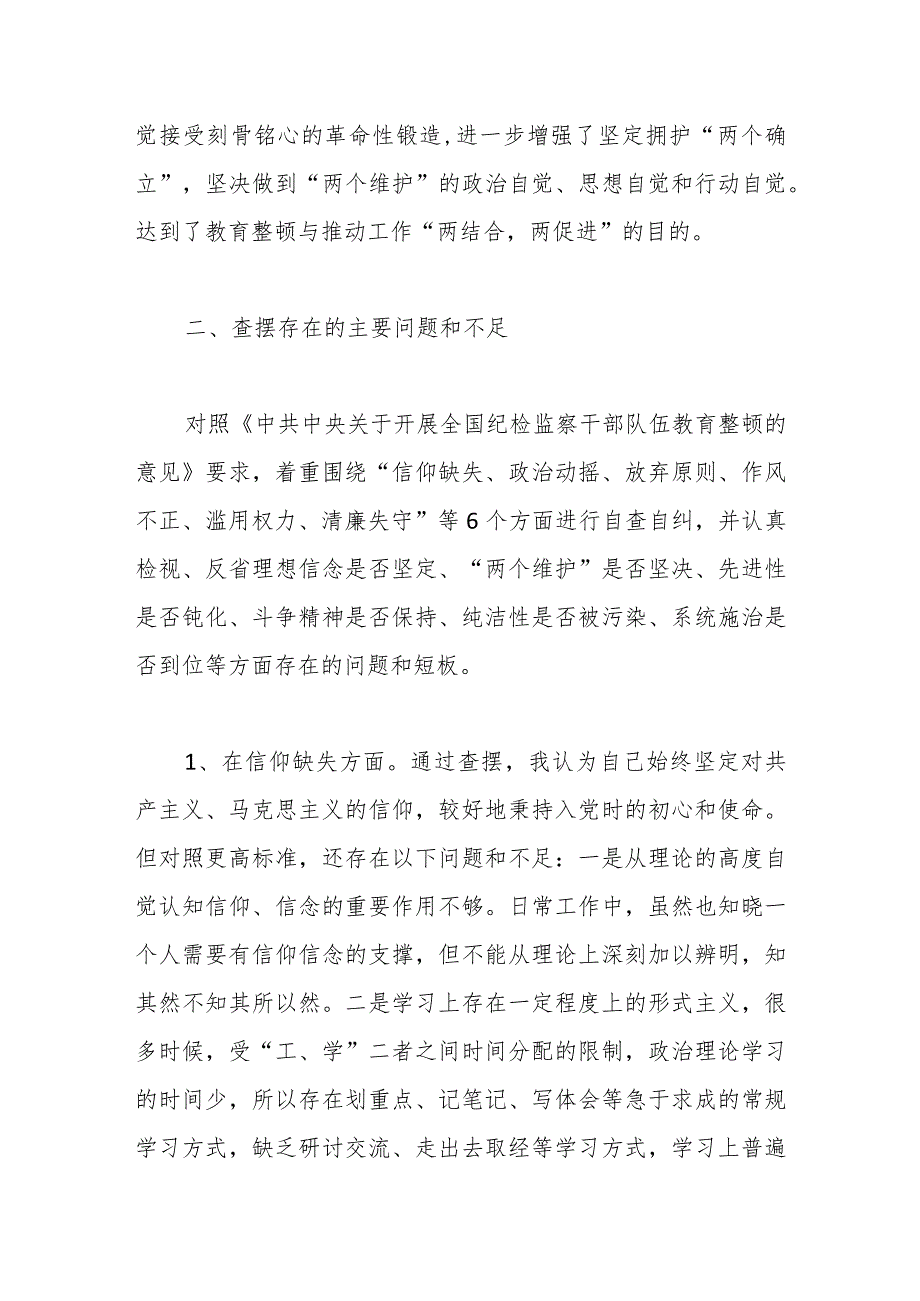 觉接受刻骨铭心的革命性锻造,进一步增强了坚定拥护“两个确
立”，坚决做到“两个维护”的政治自觉、思想自觉和行动自觉。
达到了教育整顿与推动工作“两结合，两促进”的目的。
二、查摆存在的主要问题和不足
对照《中共中央关于开展全国纪检监察干部队伍教育整顿的
意见》要求，着重围绕“信仰缺失、政治动摇、放弃原则、作风
不正、滥用权力、清廉失守”等6个方面进行自查自纠，并认真
检视、反省理想信念是否坚定、“两个维护”是否坚决、先进性
是否钝化、斗争精神是否保持、纯洁性是否被污染、系统施治是
否到位等方面存在的问题和短板。
1、在信仰缺失方面。通过查摆，我认为自己始终坚定对共
产主义、马克思主义的信仰，较好地秉持入党时的初心和使命。
但对照更高标准，还存在以下问题和不足：一是从理论的高度自
觉认知信仰、信念的重要作用不够。日常工作中，虽然也知晓一
个人需要有信仰信念的支撑，但不能从理论上深刻加以辨明，知
其然不知其所以然。二是学习上存在一定程度上的形式主义，很
多时候，受“工、学”二者之间时间分配的限制，政治理论学习
的时间少，所以存在划重点、记笔记、写体会等急于求成的常规
学习方式，缺乏研讨交流、走出去取经等学习方式，学习上普遍